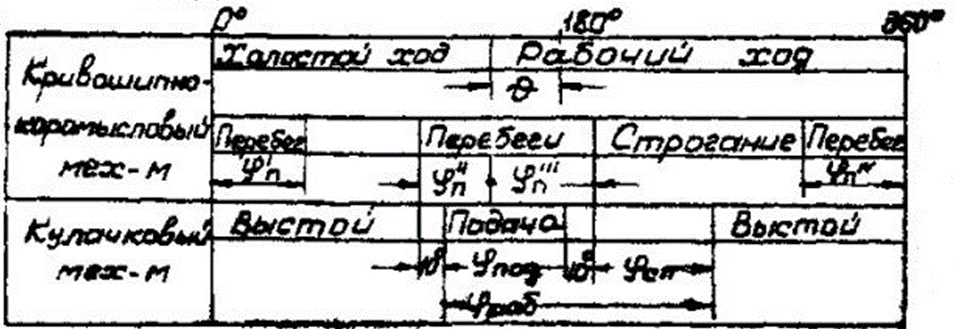 0° 180° 360°
Кривошипно-
коромысловый
мех-м
Холостой ход Рабочий ход
θ
Перебег Перебеги Строгание Перебег
φп' φп'' φп''' φп''''
Кулачковый
мех-м
Выстой Подача Выстой
10° φпод 10° φсп
φраб